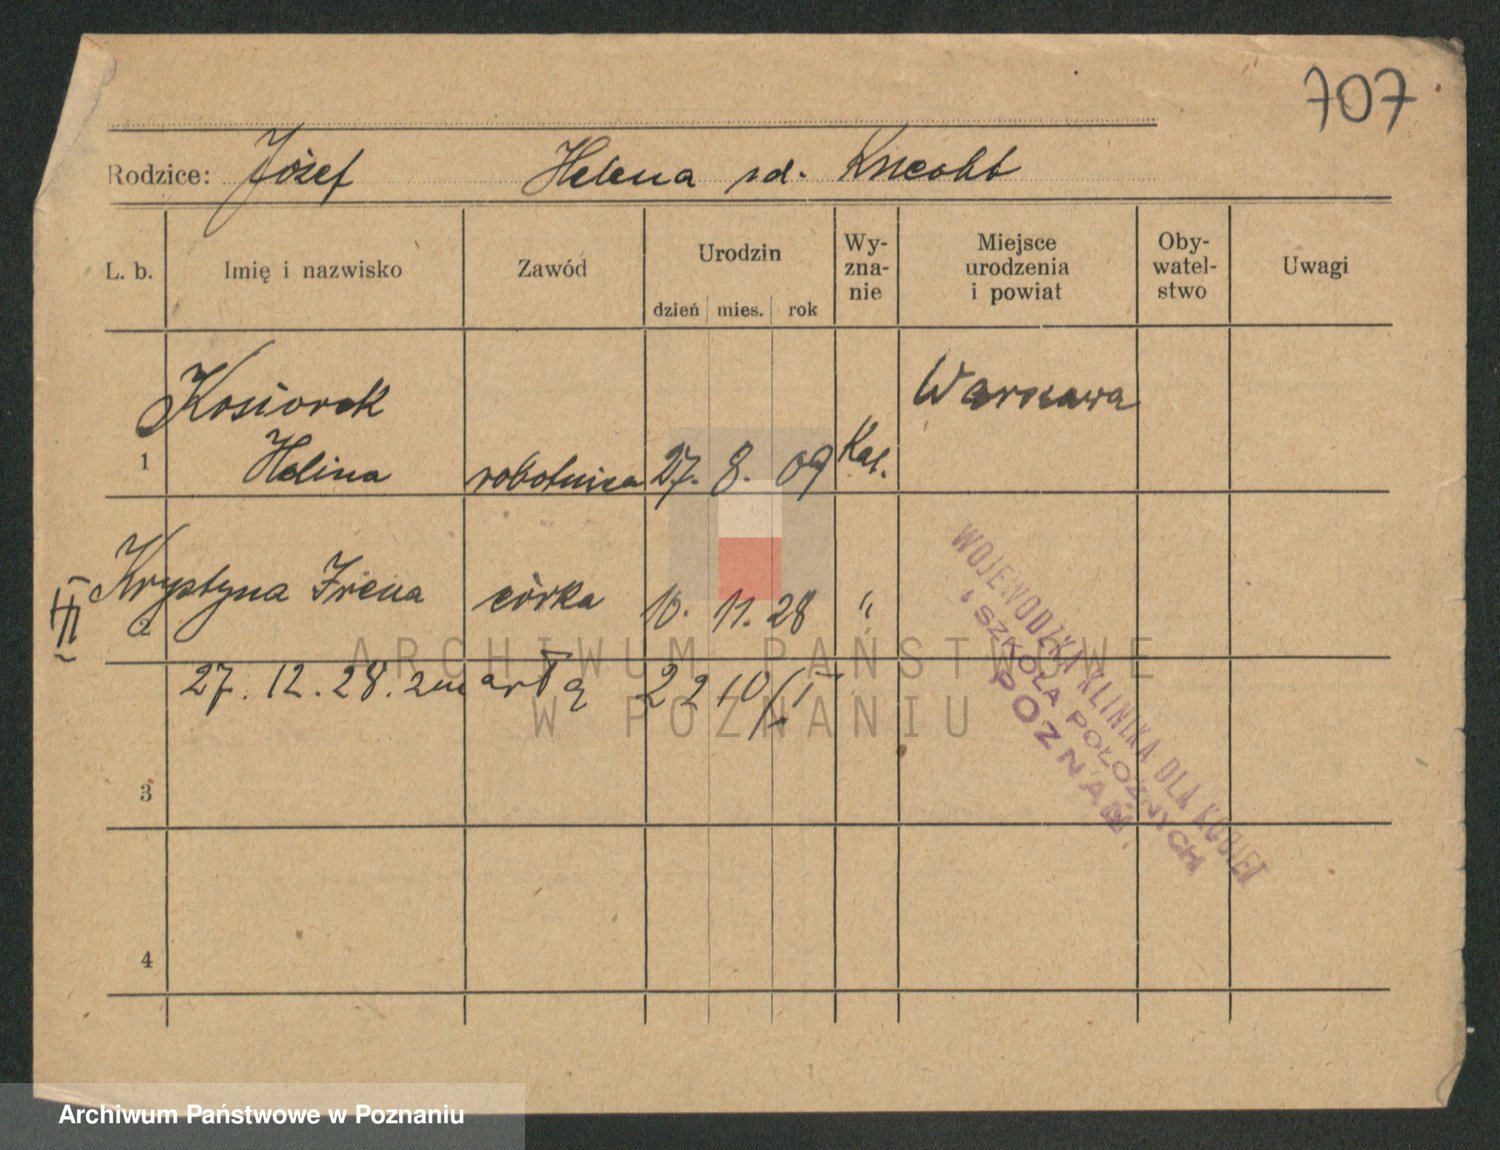 707
Rodzice: Józef Helena zd. Knecht
L. b. Imię i nazwisko Zawód Urodzin dzień mies. rok Wy-zna-nie Miejsce urodzenia i powiat Oby-watel-stwo Uwagi
Kosiorek Warszawa
1 Helina robotnica 27. 8. 09 Kat.
2 Krystyna Irena córka 10. 11. 28 "
27. 12. 28. zmarła 2210/II
3
4
WOJEWÓDZKA KLINIKA DLA KOBIET
i SZKOŁA POŁOŻNYCH
POZNAŃ
ARCHIWUM PAŃSTWOWE
W POZNANIU
Archiwum Państwowe w Poznaniu